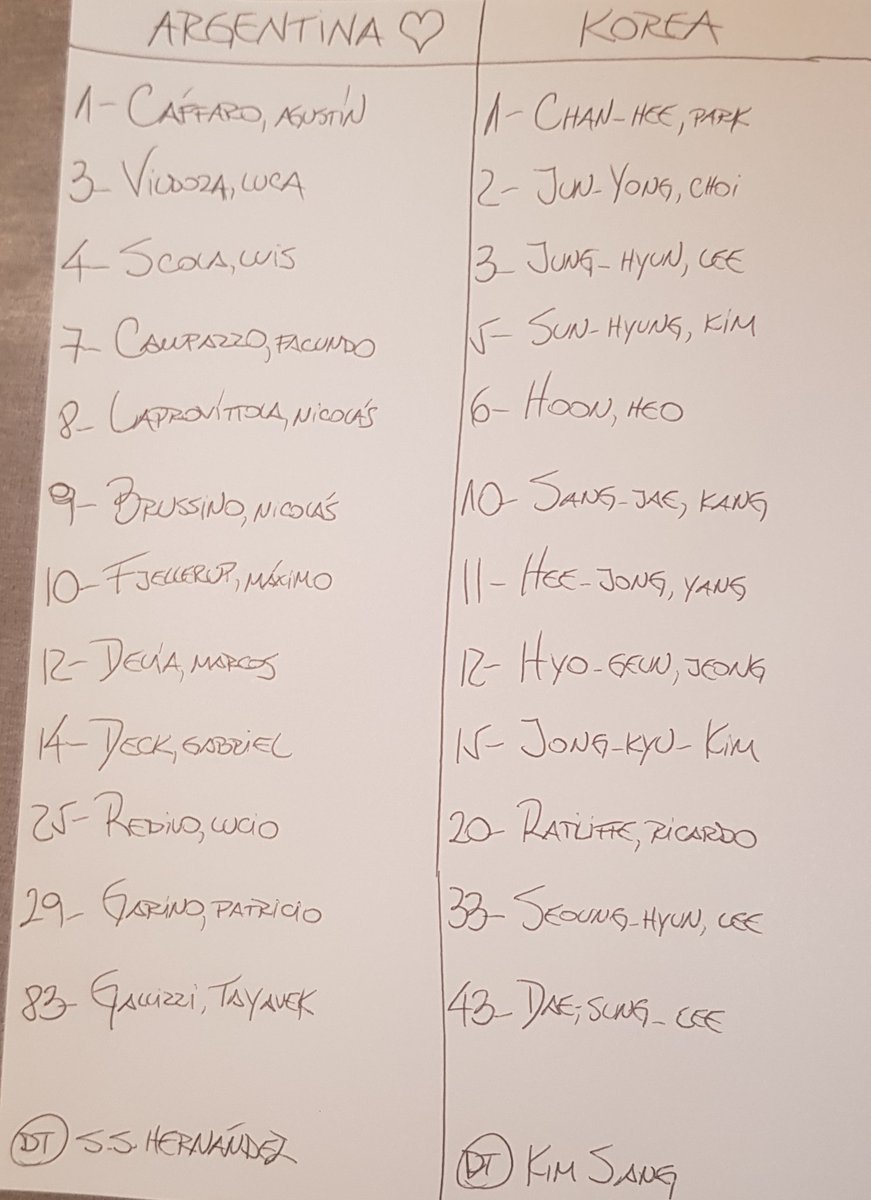 ARGENTINA ♡
1- CÁFFARO, AGUSTÍN
3- VILDOZA, LUCA
4- SCOLA, LUIS
7- CAMPAZZO, FACUNDO
8- LAPROVÍTTOLA, NICOLÁS
9- BRUSSINO, NICOLÁS
10- FJELLERUP, MÁXIMO
12- DELÍA, MARCOS
14- DECK, GABRIEL
25- REDIVO, LUCIO
29- GARINO, PATRICIO
83- GALLIZZI, TAYAVEK
DT S.S. HERNÁNDEZ
KOREA
1- CHAN-HEE, PARK
2- JUN-YONG, CHOI
3- JUNG-HYUN, LEE
5- SUN-HYUNG, KIM
6- HOON, HEO
10- SANG-JAE, KANG
11- HEE-JONG, YANG
12- HYO-GEUN, JEONG
15- JONG-KYU- KIM
20- RATLIFFE, RICARDO
33- SEOUNG-HYUN, LEE
43- DAE-SUNG- LEE
DT KIM SANG